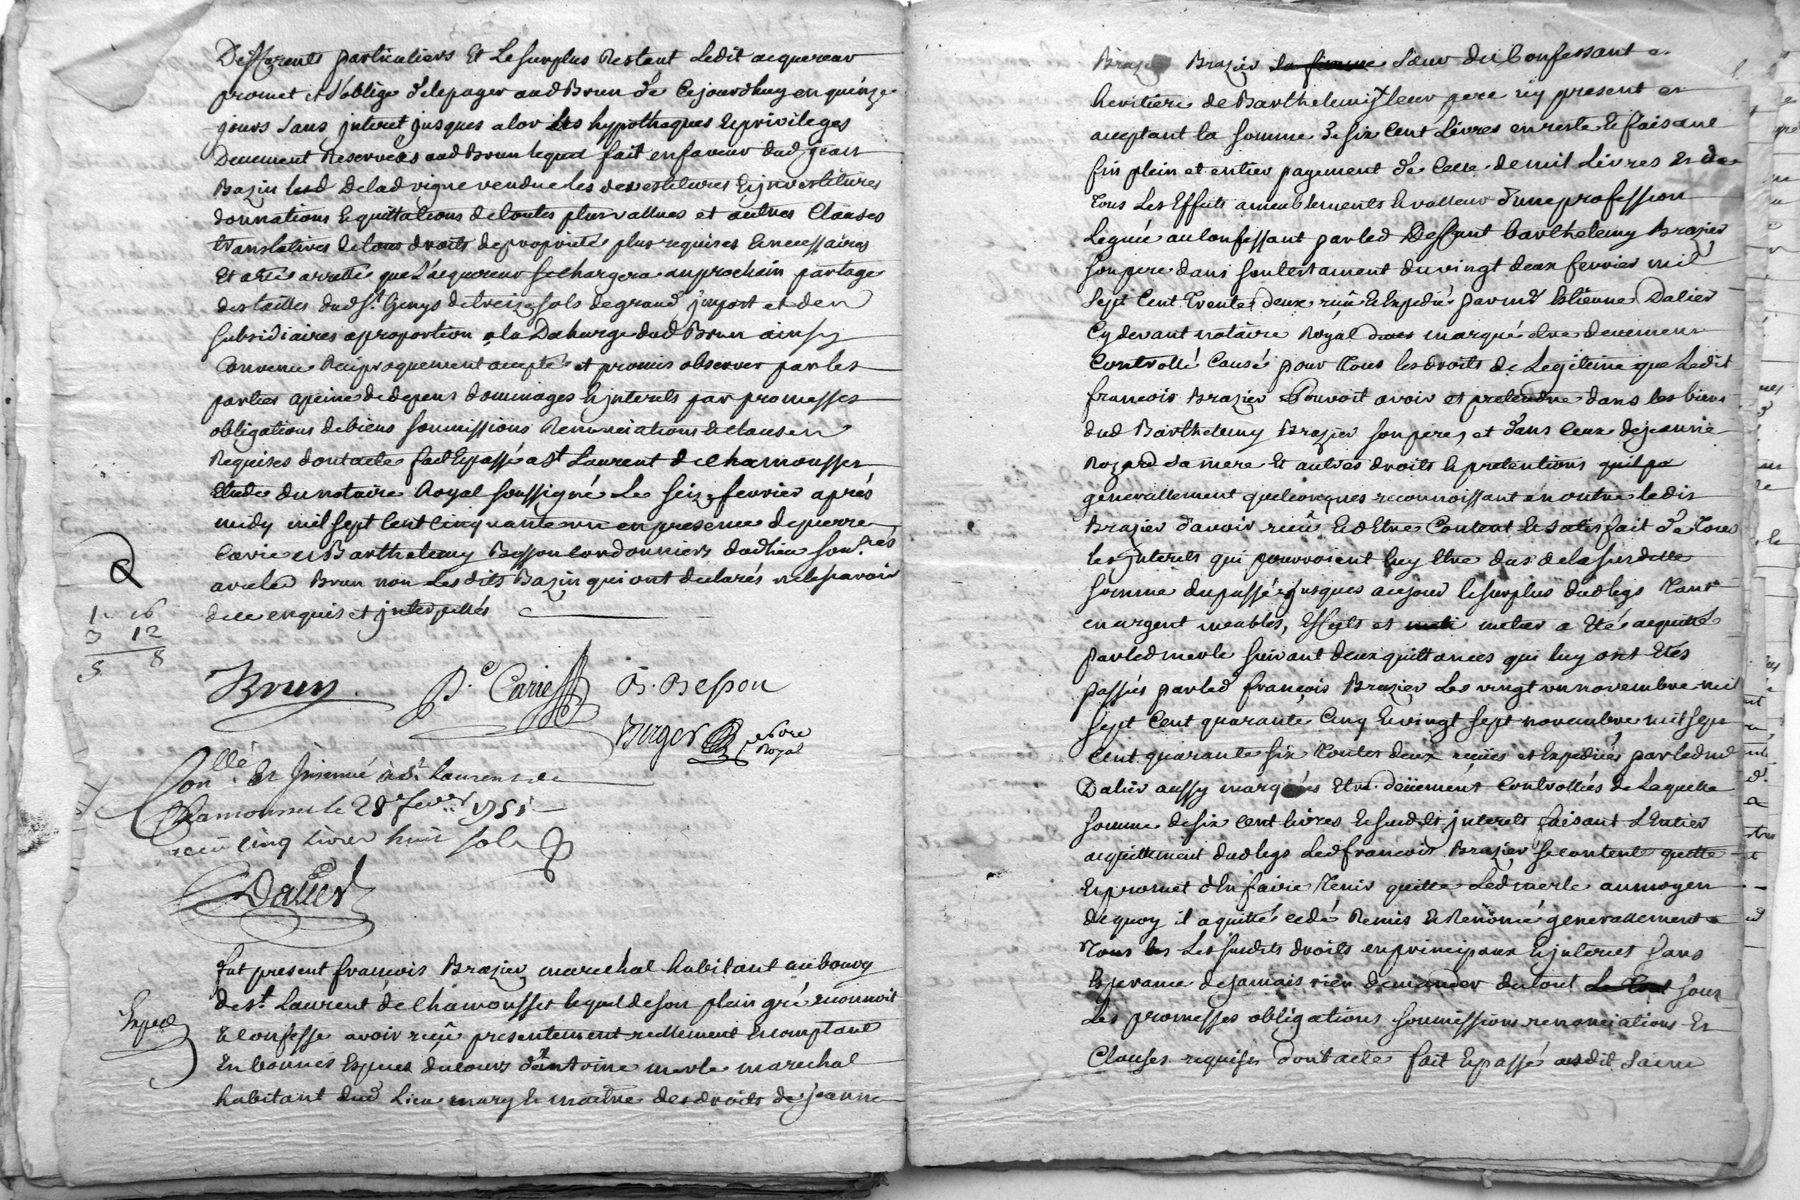 Differents particuliers Et Le surplus Restant Ledit acquereur
promet et s'oblige de le payer aud Brun d'e Cejourdhuy en quinze
jours sans jnteret jusques alor les hypotheques et privileges
Deuement Reservées aud Brun lequel fait en faveur dud jean
Bazin lesd delad vigne vendue les devestitures Et jnvestitures
donnations et quittations de toutes plus vallues et autres Clauses
translatives de tous droits de proprieté plus requises et necessaires
Et a été arretté que L'acquereur se chargera au prochain partage
des tailles dud St. Genys de treize sols de grand jmpost et den
subsidiaires a proportion a la Decharge dud Brun ainsy
Convenu Reciproquement accepté et promis observer par les
parties a peine de depens dommages et jnterets par promesses
obligations de biens soumissions Renonciations et clauses
Requises dont acte fait et passé a St Laurent de Chamousset
Etude du notaire Royal soussigné Le seize fevrier aprés
midy mil sept Cent cinquante un en presence de pierre
Carie et Barthelemy Besson cordonniers dud lieu sous.nés
avec led Brun non Lesdits Bazin qui ont declarés ne le savoir
de ce enquis et jnterpellés
1. 16
3 12
5 8
Brun. P. Carie B. Besson
Burger nore Royal
Conllé. Et Jnsinué à St. Laurent de
Chamousset le 28e fevrier 1751
receu cinq livres huit sols
Dalier
Expedié
fut present françois Brazier marechal habitant au bourg
de St. Laurent de Chamousset lequel de son plein gré reconnoit
Et confesse avoir reçû presentement reellement et comptant
En bonnes Especes du cours d'antoine merle marechal
habitant dud Lieu mary et maitre des droits de jeanne
Brazier Brazier sa femme sœur du Confessant
heritiere de Barthelemy leur pere icy present et
aceptant la somme de six Cent Livres en reste et faisant
fin plein et entier payement d'e Celle de mil Livres et de
tous Les Effets ameublements et valleur d'une profession
Leguée au Confessant par led Deffunt barthelemy Brazier
son pere dans son testament du vingt deux fevrier mil
sept Cent trente deux reçu et Expedié par me Etienne Dalier
Cy devant notaire Royal dues marqué etre deuement
Controllé Causé pour tous les droits de Legitime que Ledit
françois Brazier Pouvoit avoir et pretendre dans les biens
dud Barthelemy Brazier son pere, et dans Ceux de jeanne
Rozard sa mere Et autres droits et pretentions
generallement quelconques reconnoissant en outre ledit
Brazier d'avoir reçû Et d'Etre Content et satisfait de tous
les jnterets qui pouvoient luy Etre dus de la susditte
somme du passé jusques a ce jour le surplus dud legs tant
en argent meubles, Effects et metier a Eté acquitté
par led merle suivant deux quittances qui luy ont Etés
passées par led françois Brazier Les vingt un novembre mil
sept Cent quarante Cinq et vingt sept novembre mil sept
Cent quarante six toutes deux reçües et Expediées par led me
Dalier aussy marquées Etre deüement Controllées de Laquelle
somme de six cent livres et susdits jnterets faisant L'Entier
acquittement dud legs Led françois Brazier se contente quitte
Et promet d'En faire tenir quitte Led merle au moyen
de quoy il a quitté cedé Remis et Renoncé generallement a
tous Les susdits droits en principaux et jnterets sans
Esperance de jamais rien demander du tout sous
Les promesses obligations soumissions renonciations Et
Clauses requises dont acte fait et passé audit Saint